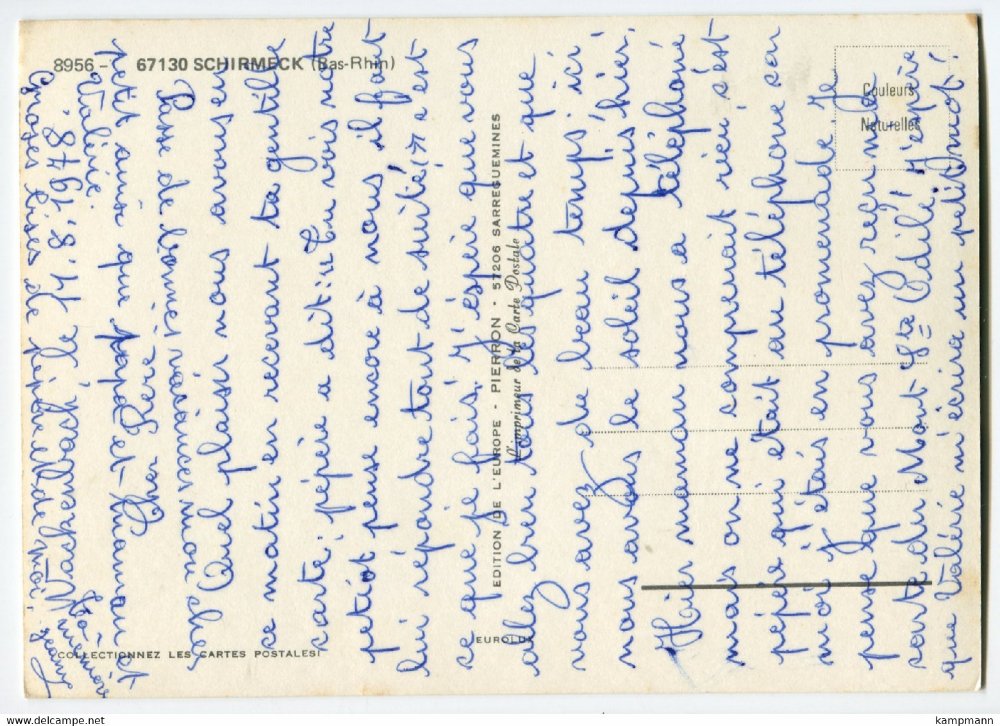 8956 - 67130 SCHIRMECK (Bas-Rhin)
Couleurs
Naturelles
EDITION DE L'EUROPE - PIERRON - 57206 SARREGUEMINES
L'imprimeur de la Carte Postale
EUROLUX
COLLECTIONNEZ LES CARTES POSTALES!
Waschenbach le 14.8.1978.
Cher
Quel plaisir nous avons eu
ce matin en recevant ta gentille
carte, pépère a dit: "Tu vois notre
petiot pense encore à nous il faut
lui répondre tout de suite" est
ce que je fais. J'espère que vous
allez bien tous les quatre et que
vous avez de beau temps; ici
nous avons le soleil depuis hier.
Hier maman nous a téléphoné
mais on ne comprenait rien c'est
pépère qui était au téléphone car
moi j'étais en promenade. Je
pense que vous avez reçu ma
carte du Mont Ste Odile! J'espère
que Valérie m'écrira un petit mot!
Passe de bonnes vacances mon chou
petit ainsi que papa et maman et
Valérie.
Grosses bises de pépère et de moi.
Ta mémère
Jeanne
kampmann